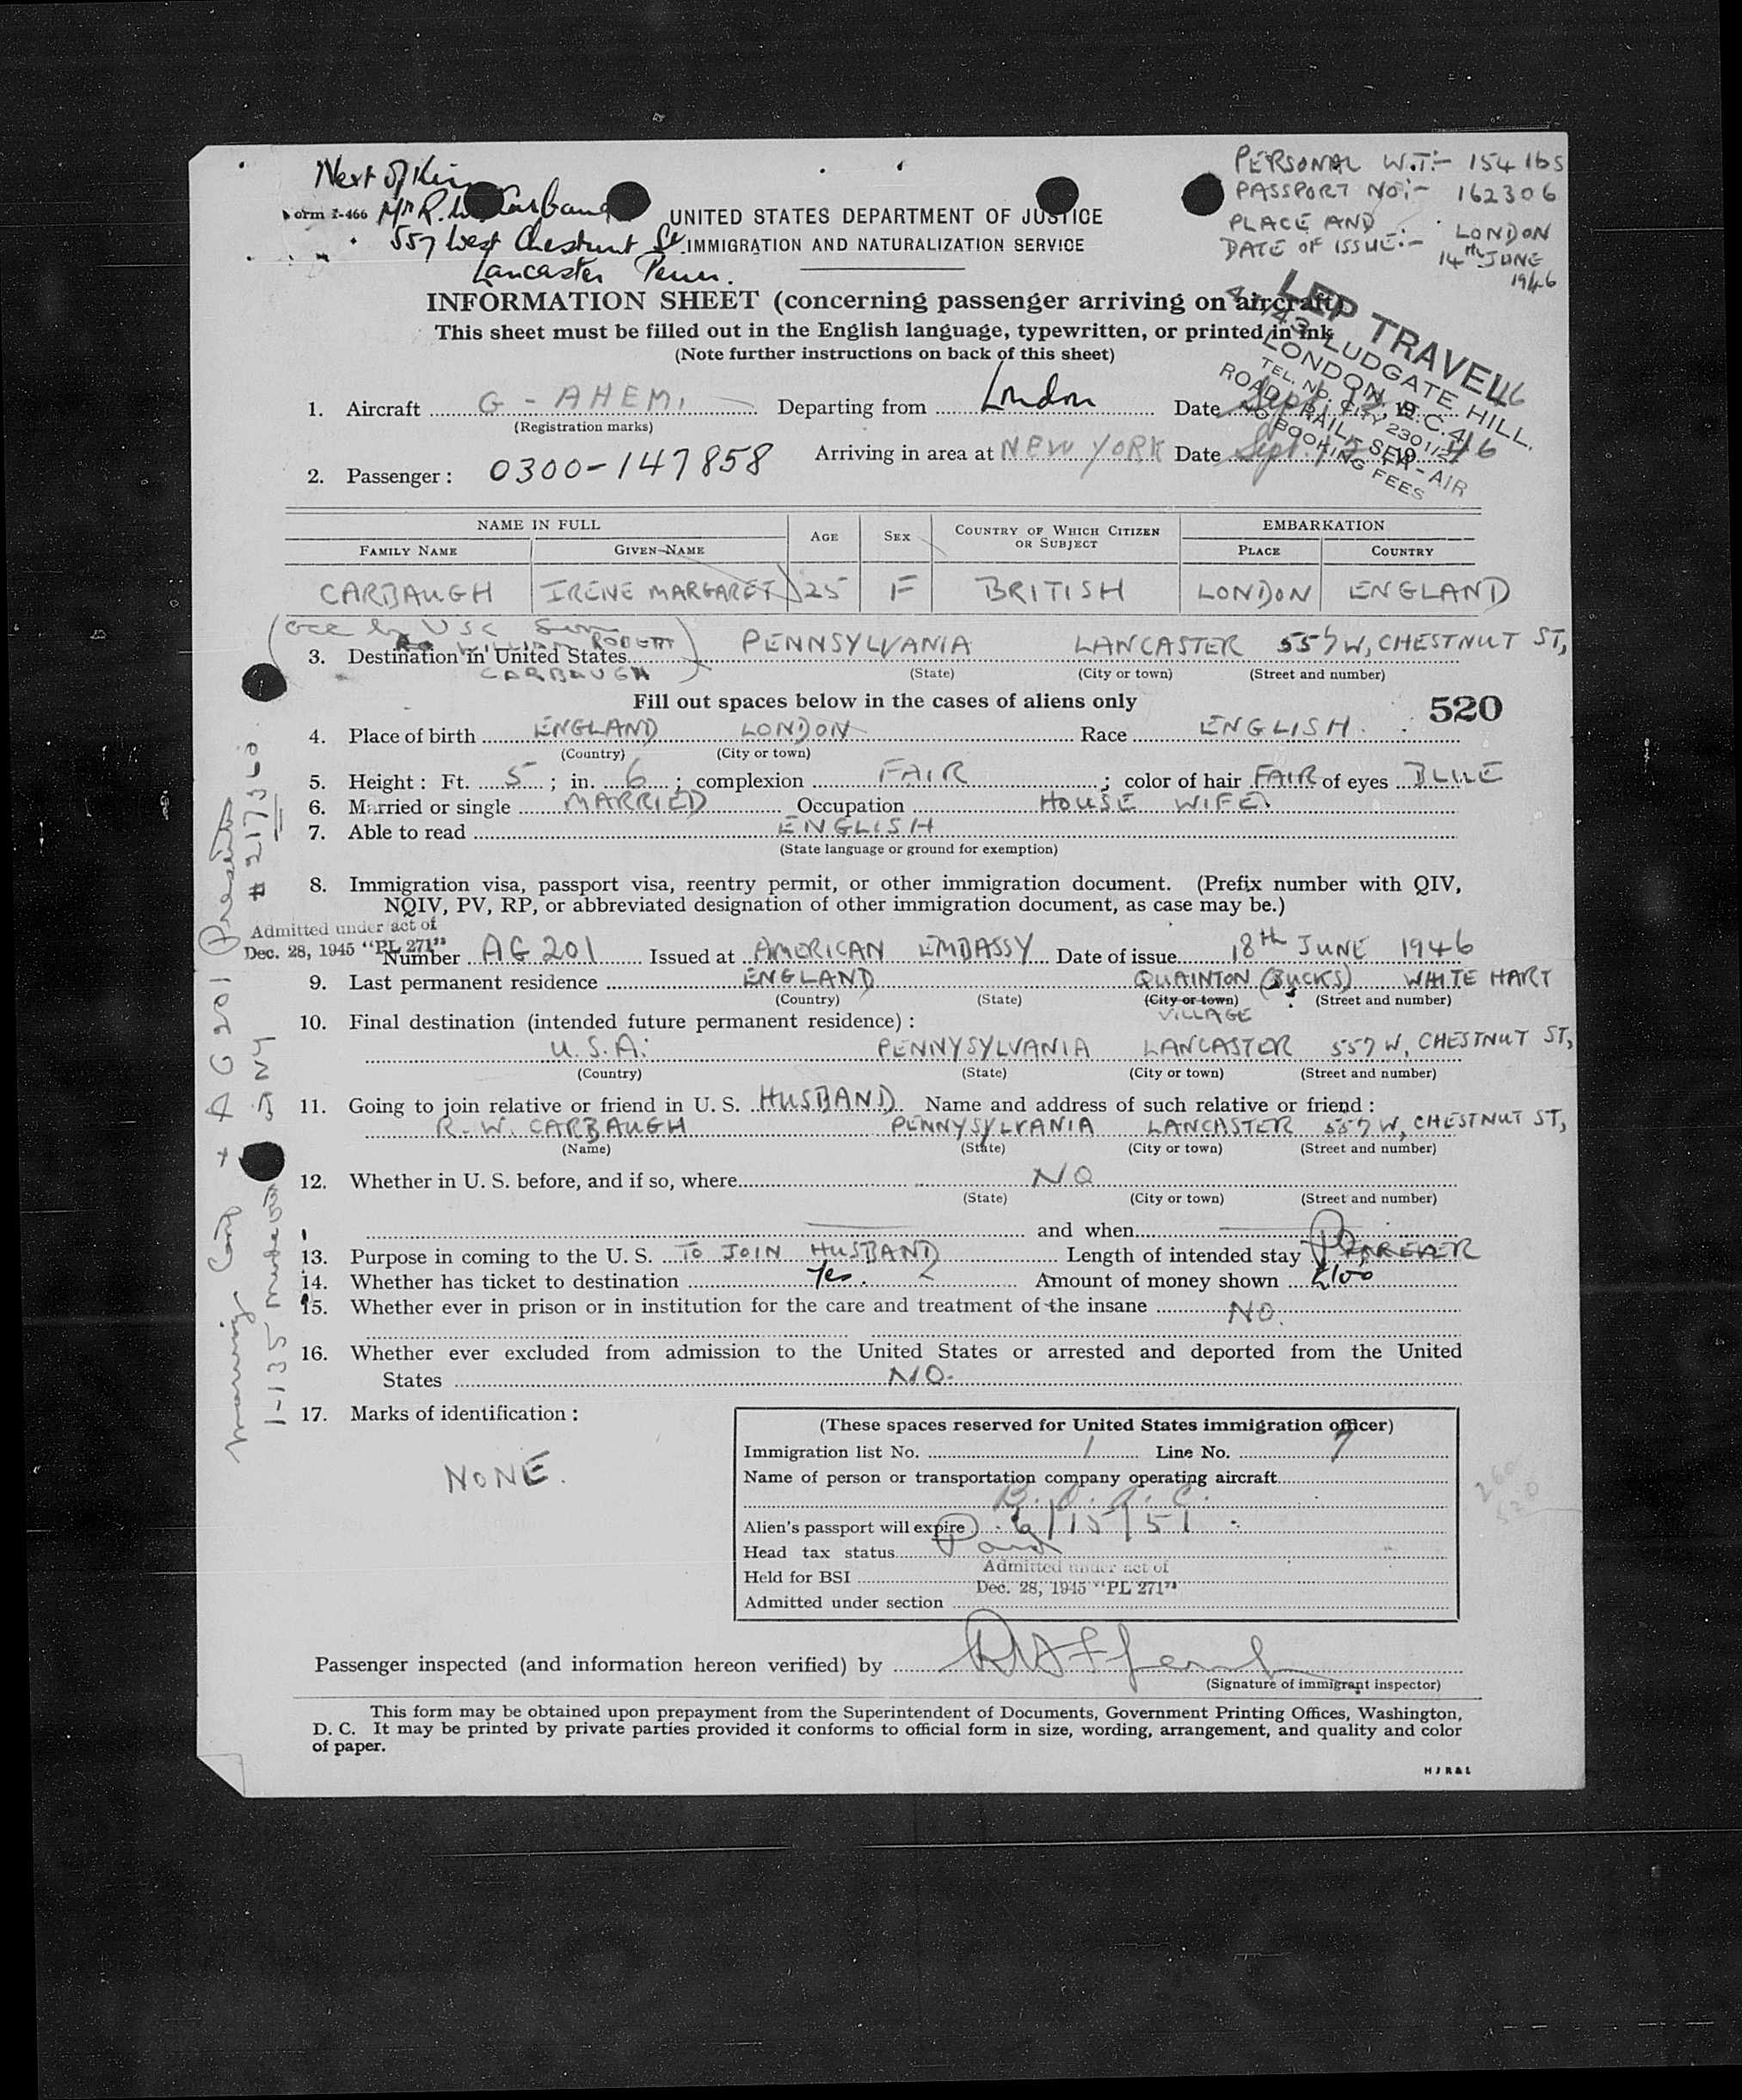 Next of Kin
Form I-466 Mr R. W. Carbaugh
557 West Chestnut St.
Lancaster Penn.
PERSONAL W.T:- 154 lbs
PASSPORT NO:- 162306
PLACE AND LONDON
DATE OF ISSUE:- 14TH JUNE
1946
UNITED STATES DEPARTMENT OF JUSTICE
IMMIGRATION AND NATURALIZATION SERVICE
INFORMATION SHEET (concerning passenger arriving on aircraft)
This sheet must be filled out in the English language, typewritten, or printed in ink
(Note further instructions on back of this sheet)
LEP TRAVEL
41/43 LUDGATE HILL.
LONDON, E.C.4
TEL. NO. CITY 2301/2
ROAD - RAIL - SEA - AIR
NO BOOKING FEES
1. Aircraft G - AHEM. Departing from London Date Sept. 1946
(Registration marks)
Arriving in area at NEW YORK Date Sept. 1946
2. Passenger : 0300-147858
NAME IN FULL AGE SEX COUNTRY OF WHICH CITIZEN OR SUBJECT EMBARKATION
FAMILY NAME GIVEN NAME PLACE COUNTRY
CARBAUGH IRENE MARGARET 25 F BRITISH LONDON ENGLAND
(acc by USC son
WILLIAM ROBERT
3. Destination in United States PENNSYLVANIA LANCASTER 557 W, CHESTNUT ST,
CARBAUGH)
(State) (City or town) (Street and number)
Fill out spaces below in the cases of aliens only 520
4. Place of birth ENGLAND LONDON Race ENGLISH.
(Country) (City or town)
5. Height : Ft. 5 ; in. 6 ; complexion FAIR ; color of hair FAIR of eyes BLUE
6. Married or single MARRIED Occupation HOUSE WIFE.
7. Able to read ENGLISH
(State language or ground for exemption)
8. Immigration visa, passport visa, reentry permit, or other immigration document. (Prefix number with QIV,
NQIV, PV, RP, or abbreviated designation of other immigration document, as case may be.)
Admitted under act of
Dec. 28, 1945 "PL 271"
Number AG 201 Issued at AMERICAN EMBASSY Date of issue 18th JUNE 1946
9. Last permanent residence ENGLAND QUAINTON (BUCKS) WHITE HART
(Country) (State) (City or town) (Street and number)
VILLAGE
10. Final destination (intended future permanent residence) :
U.S.A. PENNYSYLVANIA LANCASTER 557 W, CHESTNUT ST,
(Country) (State) (City or town) (Street and number)
11. Going to join relative or friend in U. S. HUSBAND Name and address of such relative or friend :
R. W. CARBAUGH PENNYSYLVANIA LANCASTER 557 W, CHESTNUT ST,
(Name) (State) (City or town) (Street and number)
12. Whether in U. S. before, and if so, where NO
(State) (City or town) (Street and number)
and when
13. Purpose in coming to the U. S. TO JOIN HUSBAND Length of intended stay FOREVER
14. Whether has ticket to destination Yes. Amount of money shown £100
15. Whether ever in prison or in institution for the care and treatment of the insane NO.
16. Whether ever excluded from admission to the United States or arrested and deported from the United
States NO.
17. Marks of identification :
NONE.
(These spaces reserved for United States immigration officer)
Immigration list No. 1 Line No. 7
Name of person or transportation company operating aircraft
B. O. A. C.
Alien's passport will expire 6/15/51
Head tax status Paid
Held for BSI Admitted under act of
Dec. 28, 1945 "PL 271"
Admitted under section
Passenger inspected (and information hereon verified) by
(Signature of immigrant inspector)
This form may be obtained upon prepayment from the Superintendent of Documents, Government Printing Offices, Washington,
D. C. It may be printed by private parties provided it conforms to official form in size, wording, arrangement, and quality and color
of paper.
HJR&L
Marriage + AG 201 Presented
260
520